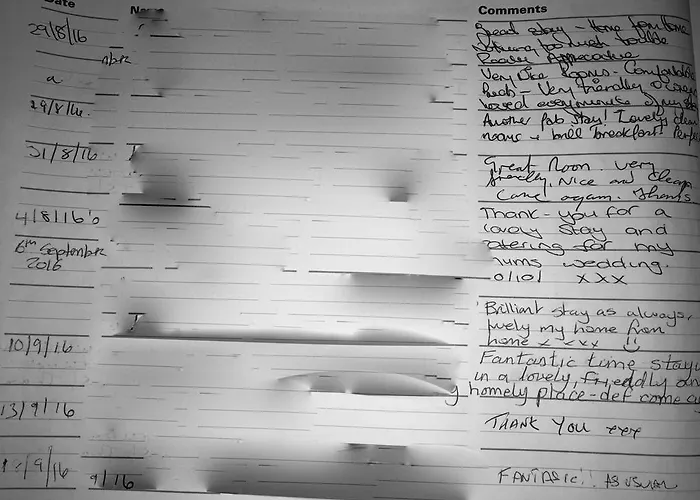 Date Name Comments
29/8/16 Great stay - Home from home
Nothing too much trouble
Really Appreciative
Very Nice Rooms. Comfortable
beds - Very friendly
loved every minute of my stay
29/8/16. Another fab stay! Lovely clean
rooms + brill breakfast! Perfect
31/8/16 Great Room. very
friendly. Nice and Clean
Come again. Thanks
4/8/16 Thank-you for a
lovely stay and
catering for my
6th September mums wedding.
2016 x x x
Brilliant stay as always,
lovely my home from
home x x x x
10/9/16 Fantastic time stay
in a lovely, friendly and
homely place - def come
13/9/16 THANK YOU xxx
9/16 9/16 FANTASTIC!! AS USUAL